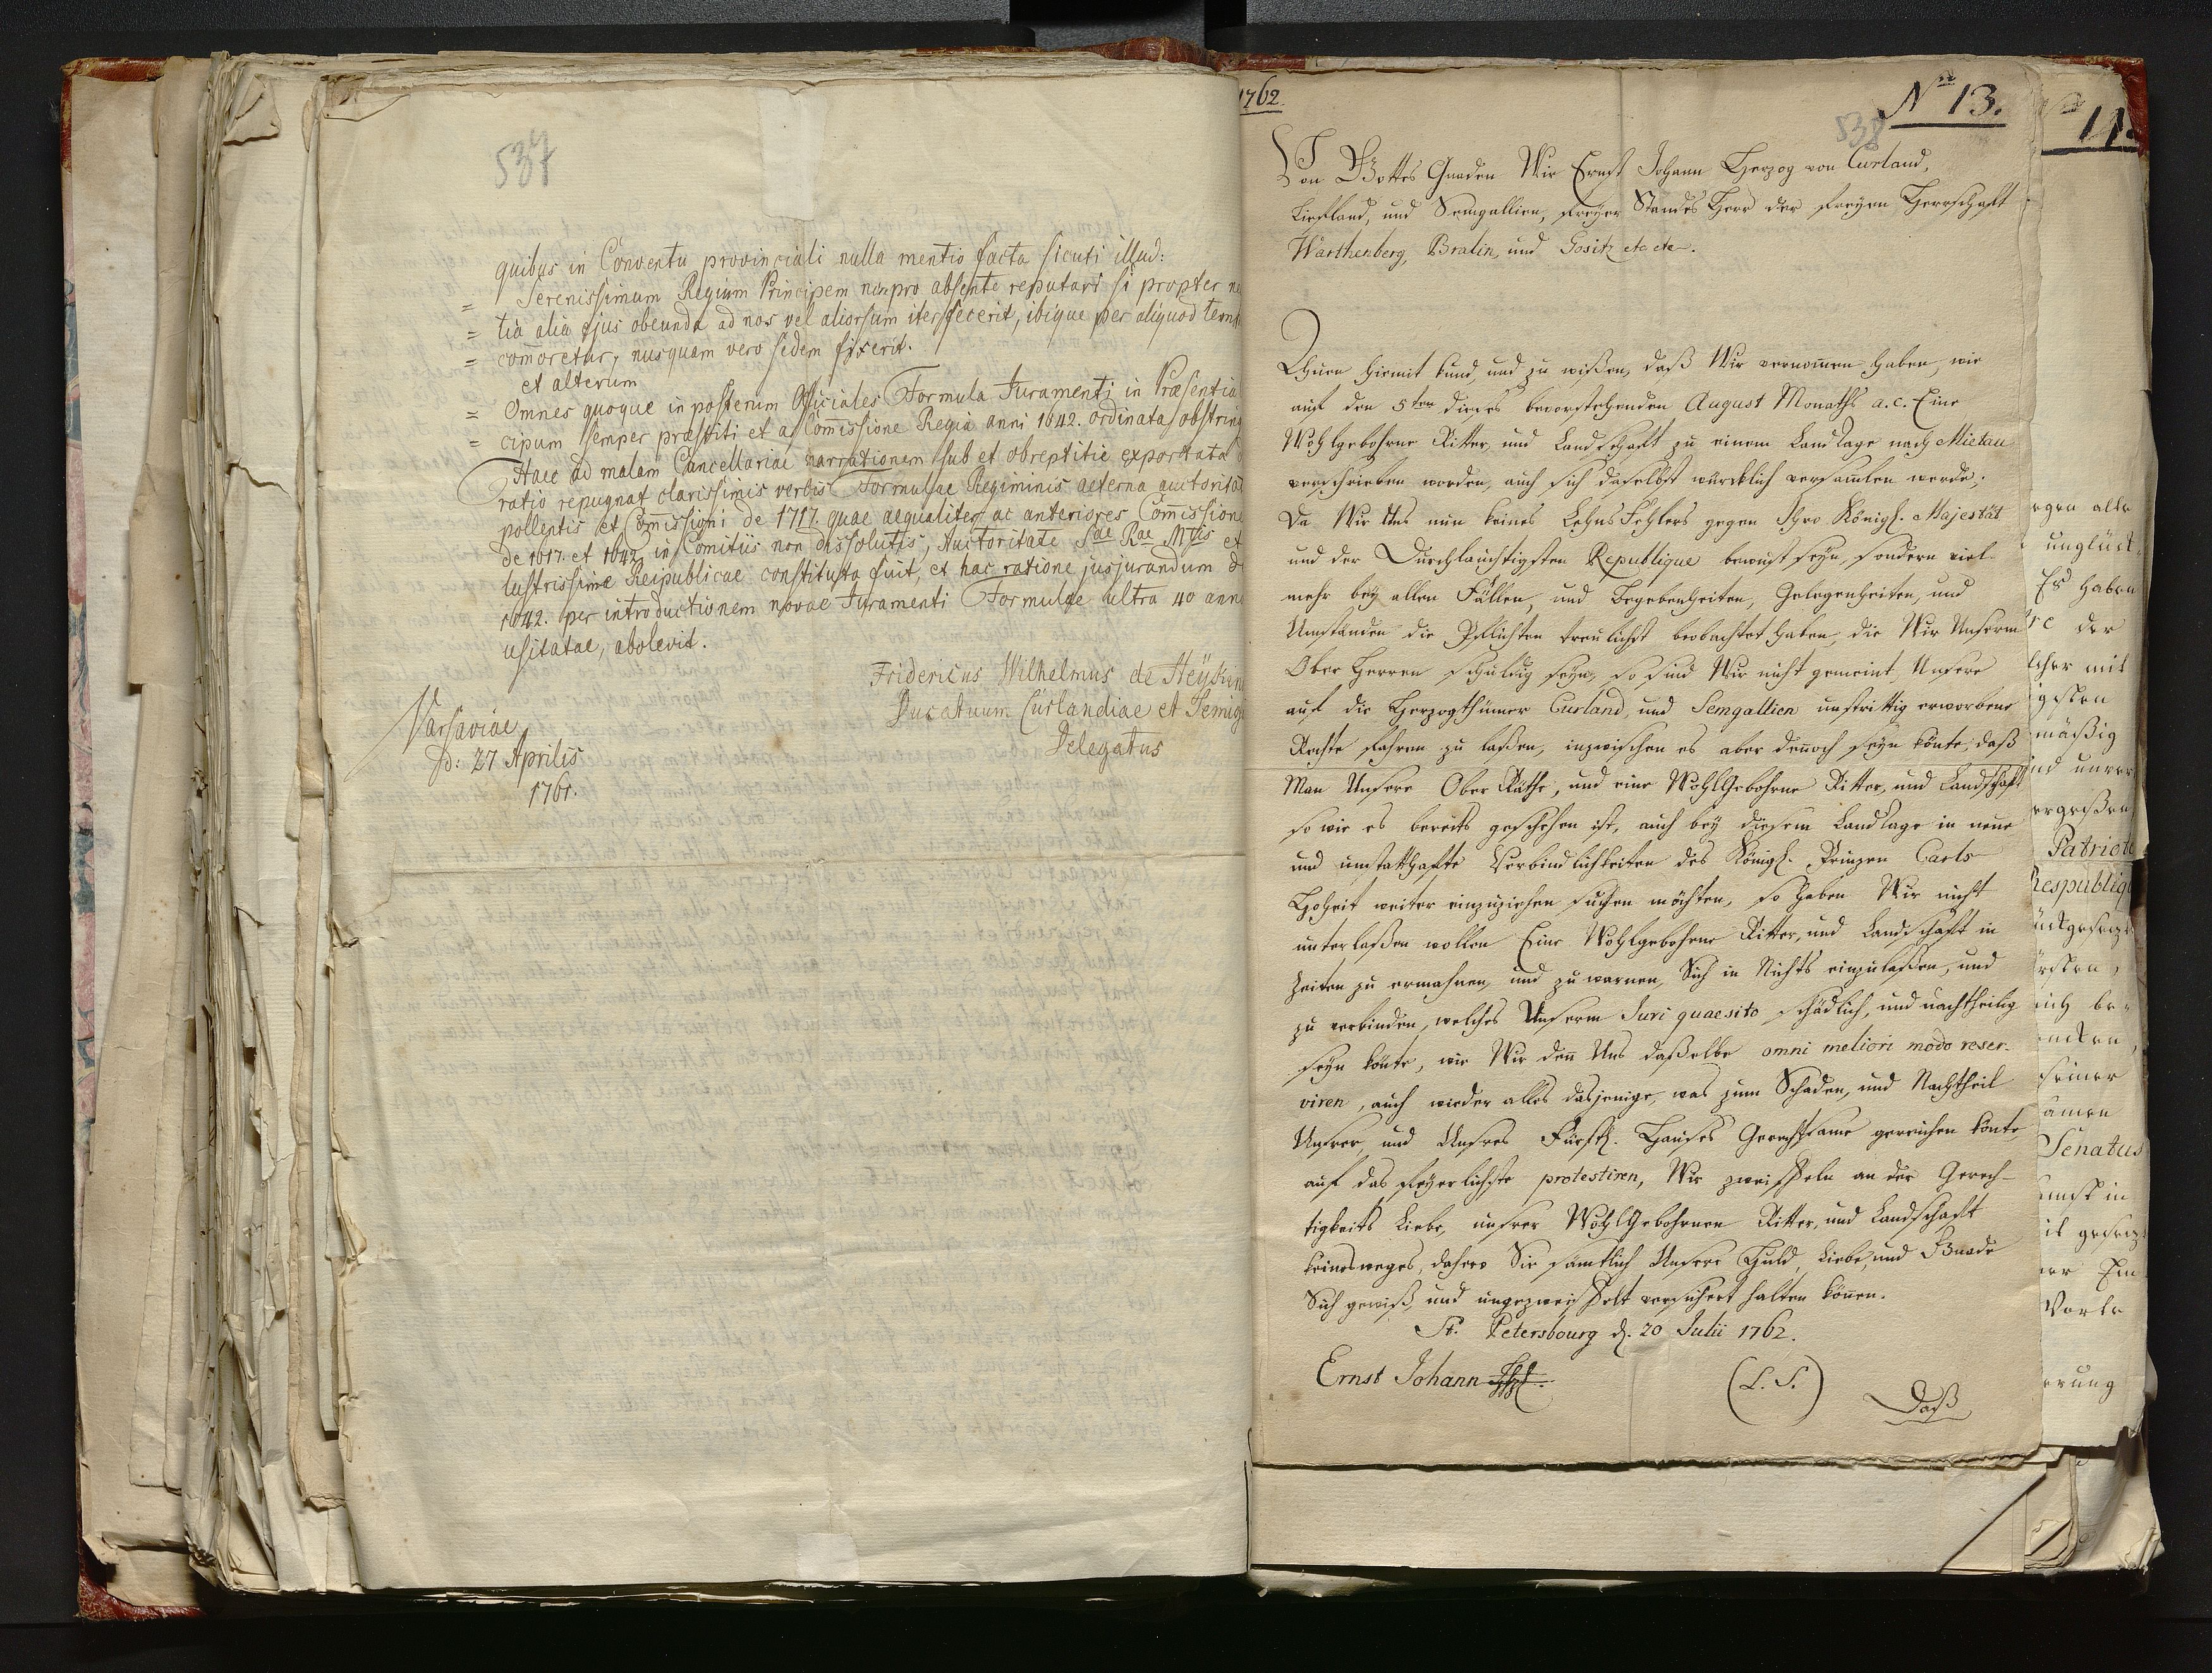 537
quibus in Conventu provinciali nulla mentio facta sicuti illud:
= Serenissimum Regium Principem non pro absente reputari si propter ne
= tia alia ejus obeunda ad nos vel aliorsum iter fecerit, ibique per aliquod tem
= com̄oretur, nusquam vero sedem fixerit.
et alterum
= Omnes quoque in posterum Officiales Formula Juramenti in Præsentia
= cipum semper præstiti et a Com̄issione Regia anni 1642. ordinata obstrin
Haec ad malam Cancellariae narrationem sub et obreptitie exportata
ratio repugnat clarissimis verbis Formulae Regiminis aeterna auctorita
pollentis et Com̄issioni de 1717. quae aequaliter ac anteriores Com̄issione
de 1617. et 1642 in Comitiis non dissolutis, Auctoritate Sae Rae Mtis et
lustrissimae Reipublicae constituta fuit, et hac ratione jusjurandum d
1642. per introductionem novae Juramenti Formulae ultra 40 ann
usitatae, abolevit.
Fridericus Wilhelmus de Heykin
Ducatuum Curlandiae et Semig
Delegatus
Varsaviae
d: 27 Aprilis
1761.
1762.
No 13.
538
Von Gottes Gnaden Wir Ernst Johann Herzog von Curland,
Liefland, und Semgallien, freyer Standes Herr der freyen Herrschaft
Warthenberg, Bralin, und Gositz etc etc.
Thuen hiemit kund, und zu wißen, daß Wir vernom̄en haben, wie
auf den 5ten dieses bevorstehenden August Monaths a.c. Eine
Wohlgebohrne Ritter, und Landschaft zu einem Landtage nach Mietau
verschrieben worden, auch sich daselbst würcklich versam̄len werde;
Da Wir Uns nun keines Lehns Fehlers gegen Ihro Königl. Majestät
und der Durchlauchtigsten Republique bewust seyn, sondern viel
mehr bey allen Fällen, und Begebenheiten, Gelegenheiten, und
Umständen die Pflichten treulichst beobachtet haben, die Wir Unserm
Ober Herren schuldig seyn, so sind Wir nicht gemeint, Unsere
auf die Herzogthümer Curland, und Semgallien unstrittig erworbene
Rechte fahren zu laßen, inzwischen es aber den̄och seyn könte, daß
Man Unsere Ober Räthe, und eine WohlGebohrne Ritter, und Landschaft
so wie es bereits geschehen ist, auch bey diesem Landtage in neue
und unstatthafte Verbindlichkeiten des Königl. Prinzen Carls
Hoheit weiter einzuziehen suchen möchten, so haben Wir nicht
unterlaßen wollen Eine Wohlgebohrne Ritter, und Landschaft in
Zeiten zu ermahnen, und zu warnen, Sich in Nichts einzulaßen, und
zu verbinden, welches Unserm Juri quaesito schädlich, und nachtheilig
seyn könte, wie Wir den̄ Uns daßelbe omni meliori modo reser-
viren, auch wieder alles dasjenige, was zum Schaden, und Nachtheil
Unsrer, und Unsres Fürstl. Hauses Gerechtsame gereichen könte,
auf das feyerlichste protestiren, Wir zweiffeln an der Gerech-
tigkeits Liebe, unsrer WohlGebohrnen Ritter, und Landschaft
keinesweges, dahero Sie sämtlich Unsere Huld, Liebe, und Gnade
Sich gewiß, und ungezweiffelt versichert halten kön̄en.
St. Petersbourg d. 20 Julii 1762.
Ernst Johann
(L.S.)
Daß
11.
rgen alte
unglück
Es haben
der
lcher mit
igsten
mäßig
nd unver
ergeßen
Patriot
Respubliq
ückgesez
ersten,
ich be-
ncken,
seiner
amen
Senatus
unst in
it gesez
er Ein
Worte
erung